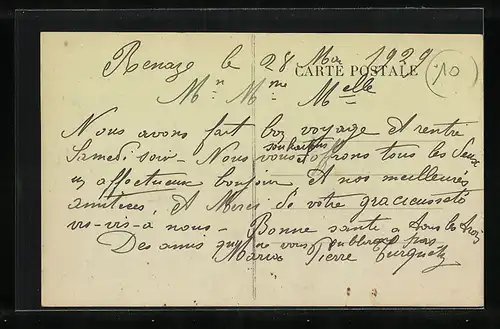 Renazé le 28 Mai 1929
10
CARTE POSTALE
Mr Mme Melle
Nous avons fait bon voyage et rentré
Samedi soir - Nous vous souhaitons et offrons tous les deux
un affectueux bonjour et nos meilleures
amitiées, et Merci de votre gracieuseté
vis-vis-a nous - Bonne santé a tous les trois
Des amis qui ne vous oublierez pas
Marie Pierre